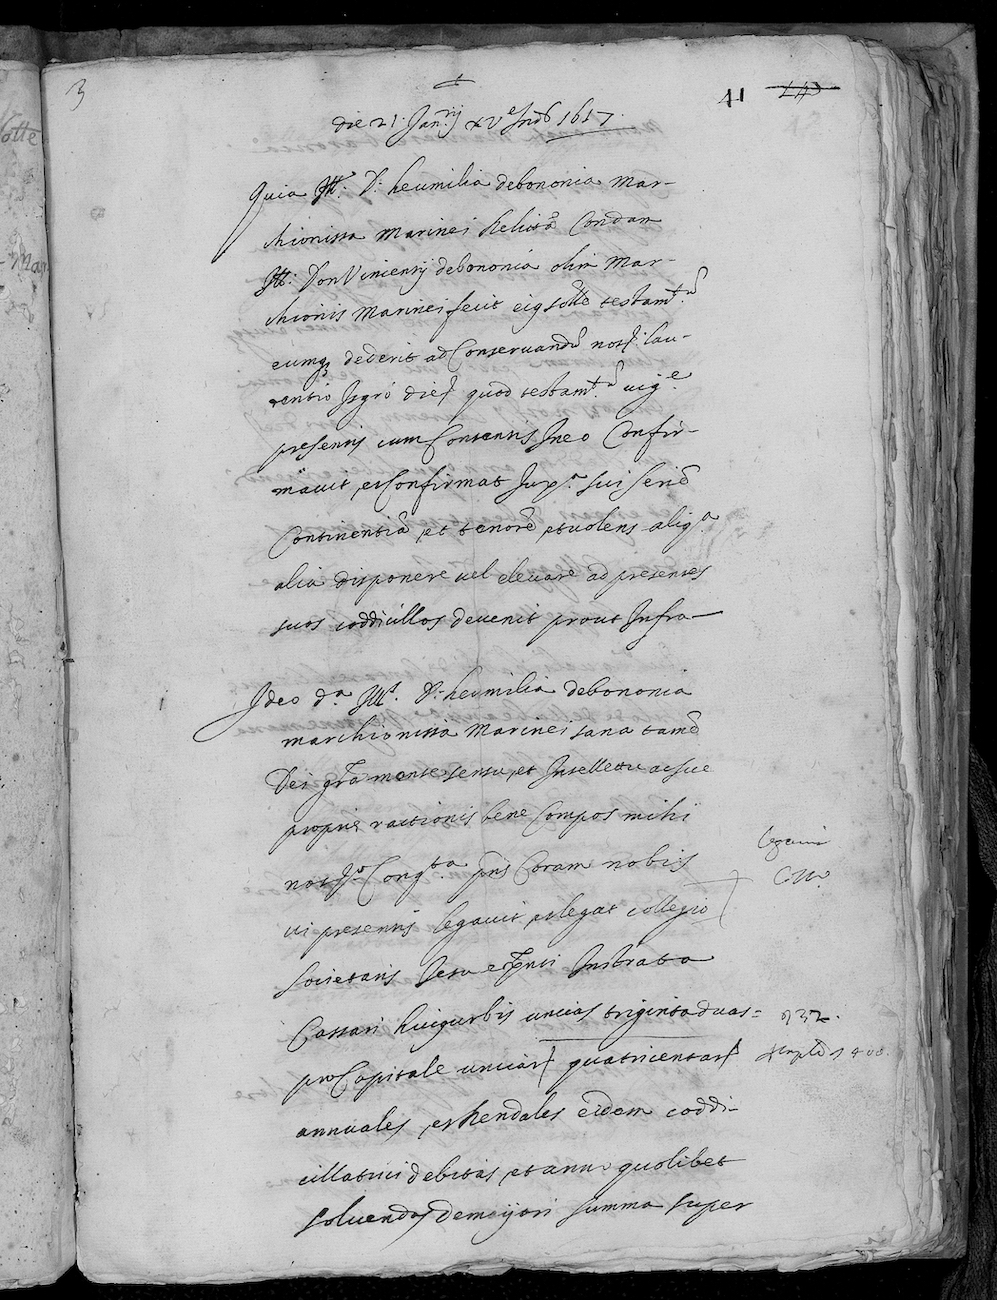 3
41
die 21. Jan.rij XVe Ind. 1617.
Quia Ill. D: heumilia debononia Mar-
chionissa Marinei Relicta Condam
Ill: Don Vincentij debononia olim Mar-
chionis Marinei fecit eiq solle testamt.
eumq dederit ad Conservand not. lau-
rentio Isgrò die quod testamt. uige
presentis cum Contentis In eo Confir-
mauit et Confirmat Juxa. sui serie
Continentia et tenore et uolens aliqa
alia disponere uel eleuare ad presentes
suos coddicillos deuenit prout Infra
Ideo da Ill. D: heumilia debononia
marchionissa Marinei sana tame
Dei gra mente sensu et Intellettu ac sue
proprie rationis bene Compos mihi
not. Congta pns Coram nobis
ui presentis legauit et legat collegio
Societatis Jesu Instrata
Cassari huiq urbis uncias triginta duas =
32.
pro Capitale unciar quatricentar
400.
annuales et Rendales eidem coddi-
cillatrici debitas et anno quolibet
soluendas de maijori summa super